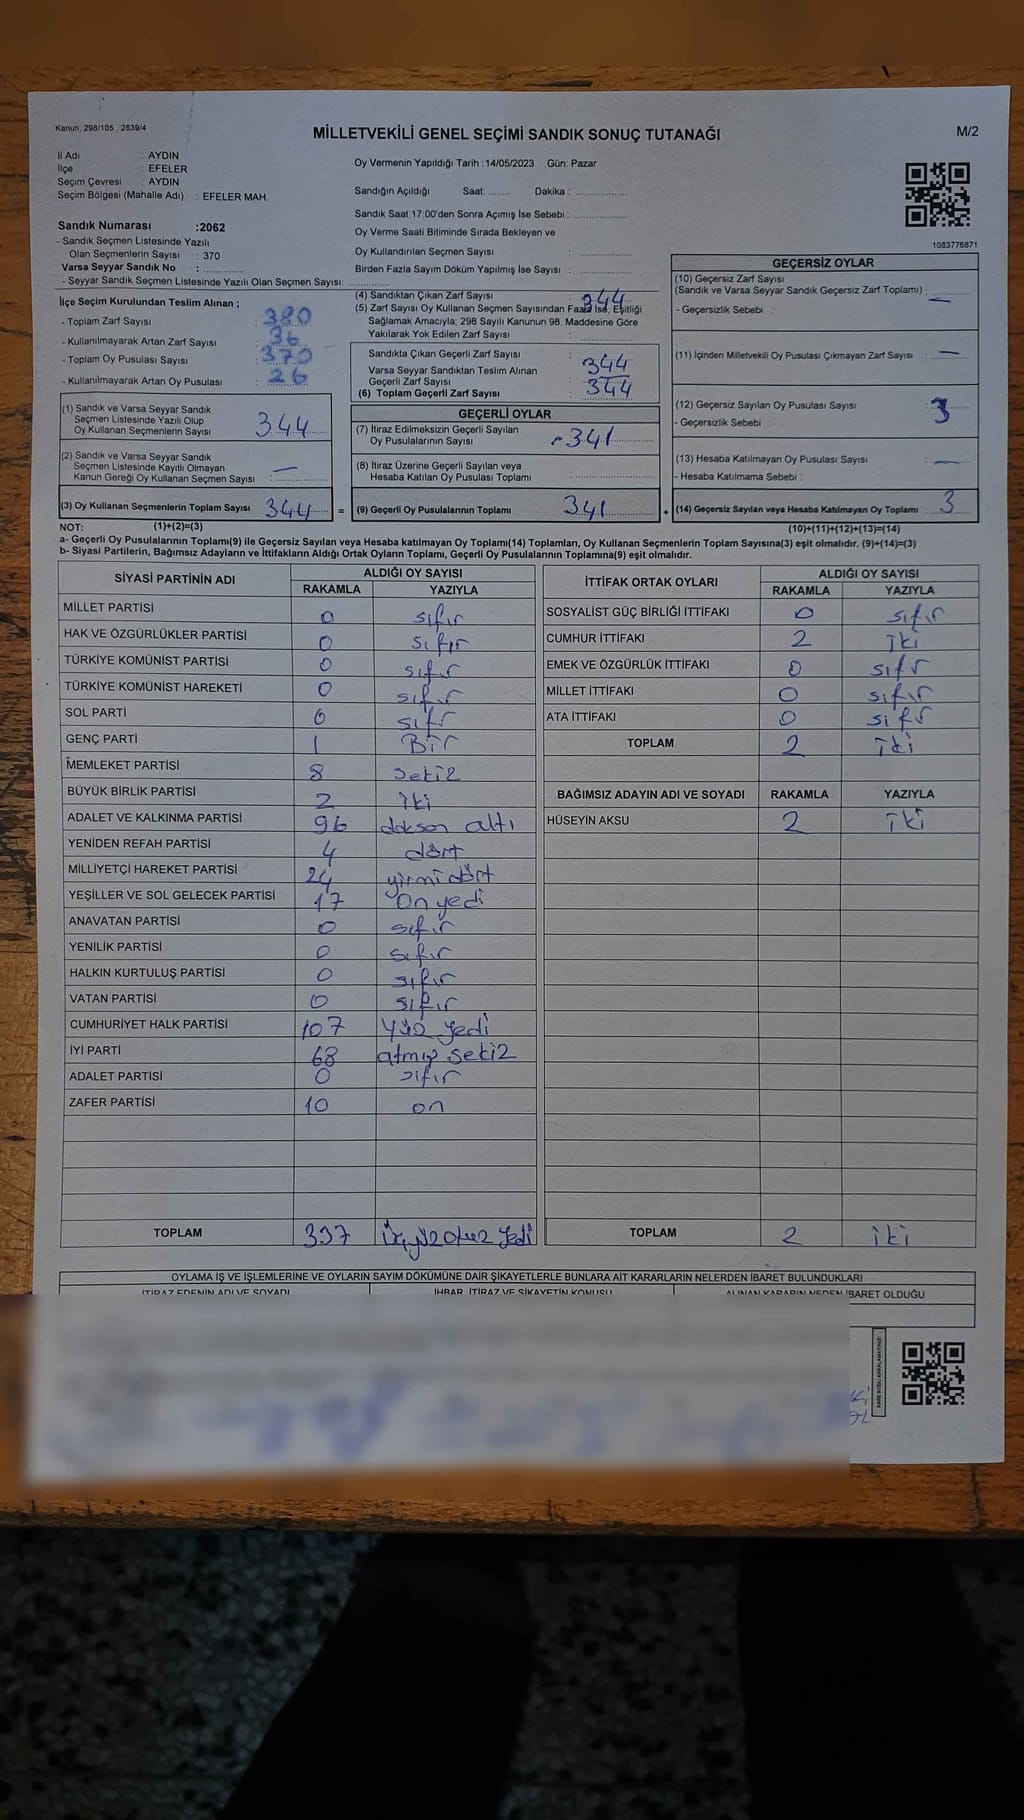 Kanun; 298/105 , 2839/4
MİLLETVEKİLİ GENEL SEÇİMİ SANDIK SONUÇ TUTANAĞI
M/2
İl Adı : AYDIN
İlçe : EFELER
Seçim Çevresi : AYDIN
Seçim Bölgesi (Mahalle Adı) : EFELER MAH.
Oy Vermenin Yapıldığı Tarih :14/05/2023 Gün: Pazar
Sandığın Açıldığı Saat: ........ Dakika : ..................
Sandık Saat 17:00'den Sonra Açımış İse Sebebi : ..................
Oy Verme Saati Bitiminde Sırada Bekleyen ve
Oy Kullandırılan Seçmen Sayısı : ..................
Birden Fazla Sayım Döküm Yapılmış İse Sayısı : ..................
1083776871
Sandık Numarası :2062
- Sandık Seçmen Listesinde Yazılı
Olan Seçmenlerin Sayısı : 370
Varsa Seyyar Sandık No : ..............
- Seyyar Sandık Seçmen Listesinde Yazılı Olan Seçmen Sayısı: ..............
İlçe Seçim Kurulundan Teslim Alınan ;
- Toplam Zarf Sayısı : 380
- Kullanılmayarak Artan Zarf Sayısı : 36
- Toplam Oy Pusulası Sayısı : 370
- Kullanılmayarak Artan Oy Pusulası : 26
(1) Sandık ve Varsa Seyyar Sandık
Seçmen Listesinde Yazılı Olup
Oy Kullanan Seçmenlerin Sayısı : 344
(2) Sandık ve Varsa Seyyar Sandık
Seçmen Listesinde Kayıtlı Olmayan
Kanun Gereği Oy Kullanan Seçmen Sayısı : —
(3) Oy Kullanan Seçmenlerin Toplam Sayısı : 344 =
(4) Sandıktan Çıkan Zarf Sayısı : 344
(5) Zarf Sayısı Oy Kullanan Seçmen Sayısından Fazla İse, Eşitliği
Sağlamak Amacıyla; 298 Sayılı Kanunun 98. Maddesine Göre
Yakılarak Yok Edilen Zarf Sayısı : ..............
Sandıkta Çıkan Geçerli Zarf Sayısı : 344
Varsa Seyyar Sandıktan Teslim Alınan
Geçerli Zarf Sayısı :
(6) Toplam Geçerli Zarf Sayısı : 344
GEÇERLİ OYLAR
(7) İtiraz Edilmeksizin Geçerli Sayılan
Oy Pusulalarının Sayısı : 341
(8) İtiraz Üzerine Geçerli Sayılan veya
Hesaba Katılan Oy Pusulası Toplamı : ..............
(9) Geçerli Oy Pusulalarının Toplamı : 341 +
GEÇERSİZ OYLAR
(10) Geçersiz Zarf Sayısı
(Sandık ve Varsa Seyyar Sandık Geçersiz Zarf Toplamı) : —
- Geçersizlik Sebebi :
(11) İçinden Milletvekili Oy Pusulası Çıkmayan Zarf Sayısı : —
(12) Geçersiz Sayılan Oy Pusulası Sayısı : 3
- Geçersizlik Sebebi :
(13) Hesaba Katılmayan Oy Pusulası Sayısı : —
- Hesaba Katılmama Sebebi :
(14) Geçersiz Sayılan veya Hesaba Katılmayan Oy Toplamı : 3
NOT: (1)+(2)=(3)
(10)+(11)+(12)+(13)=(14)
a- Geçerli Oy Pusulalarının Toplamı(9) ile Geçersiz Sayılan veya Hesaba katılmayan Oy Toplamı(14) Toplamları, Oy Kullanan Seçmenlerin Toplam Sayısına(3) eşit olmalıdır. (9)+(14)=(3)
b- Siyasi Partilerin, Bağımsız Adayların ve İttifakların Aldığı Ortak Oyların Toplamı, Geçerli Oy Pusulalarının Toplamına(9) eşit olmalıdır.
SİYASİ PARTİNİN ADI ALDIĞI OY SAYISI
RAKAMLA YAZIYLA
MİLLET PARTİSİ 0 sıfır
HAK VE ÖZGÜRLÜKLER PARTİSİ 0 sıfır
TÜRKİYE KOMÜNİST PARTİSİ 0 sıfır
TÜRKİYE KOMÜNİST HAREKETİ 0 sıfır
SOL PARTİ 0 sıfr
GENÇ PARTİ 1 Bir
MEMLEKET PARTİSİ 8 sekiz
BÜYÜK BİRLİK PARTİSİ 2 iki
ADALET VE KALKINMA PARTİSİ 96 doksan altı
YENİDEN REFAH PARTİSİ 4 dört
MİLLİYETÇİ HAREKET PARTİSİ 24 yirmi dört
YEŞİLLER VE SOL GELECEK PARTİSİ 17 On yedi
ANAVATAN PARTİSİ 0 sıfır
YENİLİK PARTİSİ 0 sıfır
HALKIN KURTULUŞ PARTİSİ 0 sıfır
VATAN PARTİSİ 0 sıfır
CUMHURİYET HALK PARTİSİ 107 Yüz yedi
İYİ PARTİ 68 atmış sekiz
ADALET PARTİSİ 0 sıfır
ZAFER PARTİSİ 10 on
TOPLAM 337 Üçyüz otuz yedi
İTTİFAK ORTAK OYLARI ALDIĞI OY SAYISI
RAKAMLA YAZIYLA
SOSYALİST GÜÇ BİRLİĞİ İTTİFAKI 0 sıfır
CUMHUR İTTİFAKI 2 iki
EMEK VE ÖZGÜRLÜK İTTİFAKI 0 sıfr
MİLLET İTTİFAKI 0 sıfır
ATA İTTİFAKI 0 sıfır
TOPLAM 2 iki
BAĞIMSIZ ADAYIN ADI VE SOYADI RAKAMLA YAZIYLA
HÜSEYİN AKSU 2 iki
TOPLAM 2 iki
OYLAMA İŞ VE İŞLEMLERİNE VE OYLARIN SAYIM DÖKÜMÜNE DAİR ŞİKAYETLERLE BUNLARA AİT KARARLARIN NELERDEN İBARET BULUNDUKLARI
İTİRAZ EDENİN ADI VE SOYADI İHBAR, İTİRAZ VE ŞİKAYETİN KONUSU ALINAN KARARIN NEDEN İBARET OLDUĞU
KARE KODU KARALAMAYINIZ!